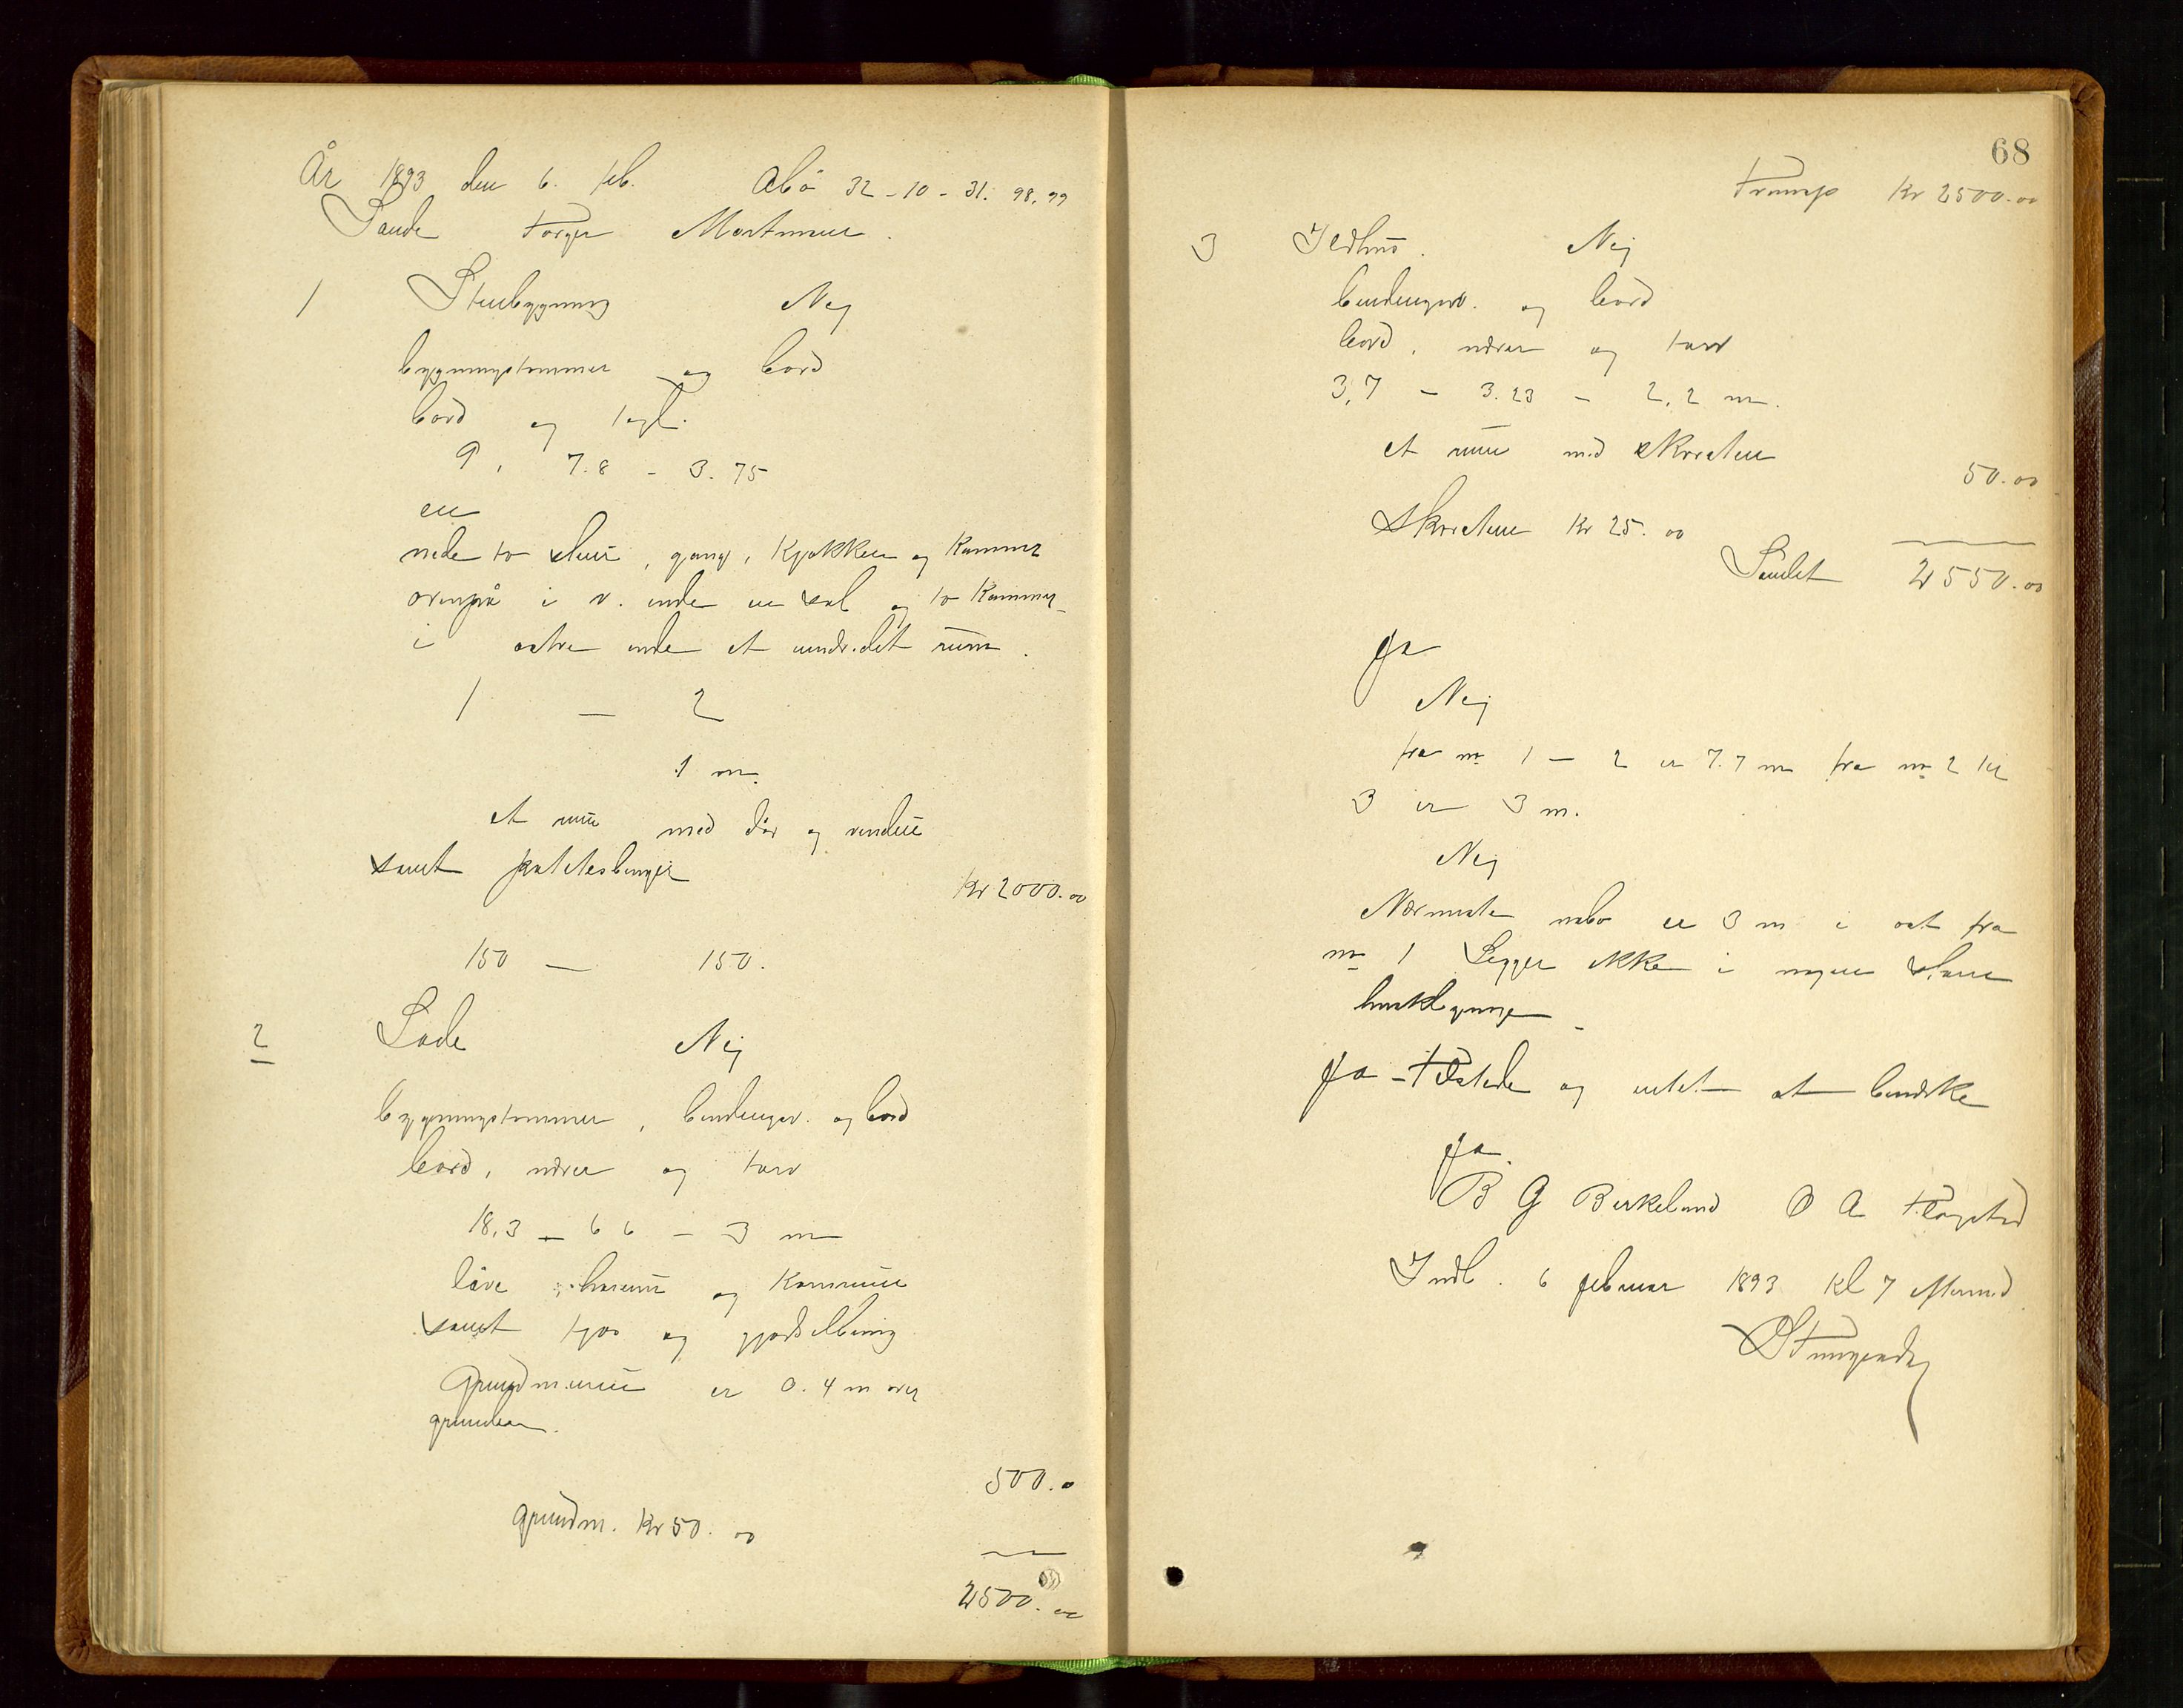 År 1893 den 6. feb. Abø 32-10-31. 98.99
Sande Torger Mortensen.
1 Stuebygning Nej
bygningstømmer og bord
bord og tegl.
9, 7.8 - 3.75
en
nede to stuer, gang, kjøkken og kammer
ovenpå i v. ende en sal og to kammer
i østre ende et uindredet rum.
1 — 2
1 m.
et rum med dør og vindue
samt potetesbinger
Kr 2000.00
150 — 150.
2 Lade Nej
bygningstømmer, bindingsv. og bord
bord, næver og torv
18,3 - 6 6 - 3 m
låve, og kornrum
samt fjøs og gjødselbinge
Grundmuren er 0.4 m over
grunden.
500.0
grundm. Kr 50.00
2500.00
68
Transp Kr 2500.00
3 Ildhus. Nej
bindingsv. og bord
bord, næver og torv
3,7 - 3.23 - 2,2 m.
et rum med skorsten
50.00
Skorsten Kr 25.00
Samlet 2550.00
Ja
Nej
fra no 1 — 2 er 7.7 m fra no 2 til
3 er 3 m.
Nej
Nærmeste nabo er 3 m i øst fra
no 1 Ligger ikke i nogen større
husklynge
Ja - Tilstede og intet at bemærke
Ja.
B G Birkeland O A Flagstad
Indl. 6 februar 1893 kl 7 eftermd